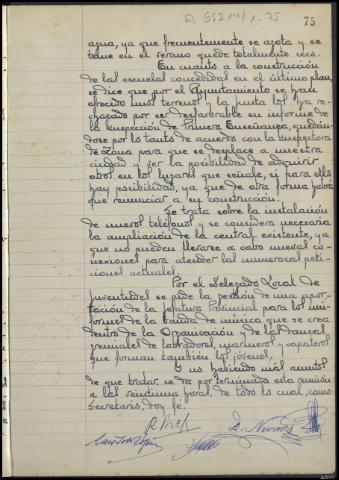 75
agua, ya que frecuentemente se agota y se
teme en el verano quede totalmente seco.
En cuanto a la construcción
de las escuelas concedidas en el último plan,
se dice que por el Ayuntamiento se han
ofrecido unos terrenos y la junta los ha re-
chazado por ser desfavorable en informe de
la Inspección de Primera Enseñanza, quedan-
dose por lo tanto de acuerdo con la Inspectora
de Zona para que se desplace a nuestra
ciudad y ver la posibilidad de adquirir
otros en los lugares que señale, si para ello
hay posibilidad, ya que de otra forma habra
que renunciar a su construcción.
Se trata sobre la instalación
de nuevos teléfonos y se considera necesaria
la ampliación de la central existente, ya
que no pueden llevarse a cabo nuevas co-
nexiones para atender las numerosas peti-
ciones actuales.
Por el Delegado Local de
Juventudes se pide la gestión de una apor-
tación de la Jefatura Provincial para los uni-
formes de la banda de música que se crea
dentro de la Organización y de las Danzas
gremiales de labradores, marineros y zapateros
que forman también los jóvenes.
Y no habiendo más asuntos
de que tratar, se da por terminada esta reunión
a las veintiuna horas, de todo lo cual, como
Secretario, doy fé.